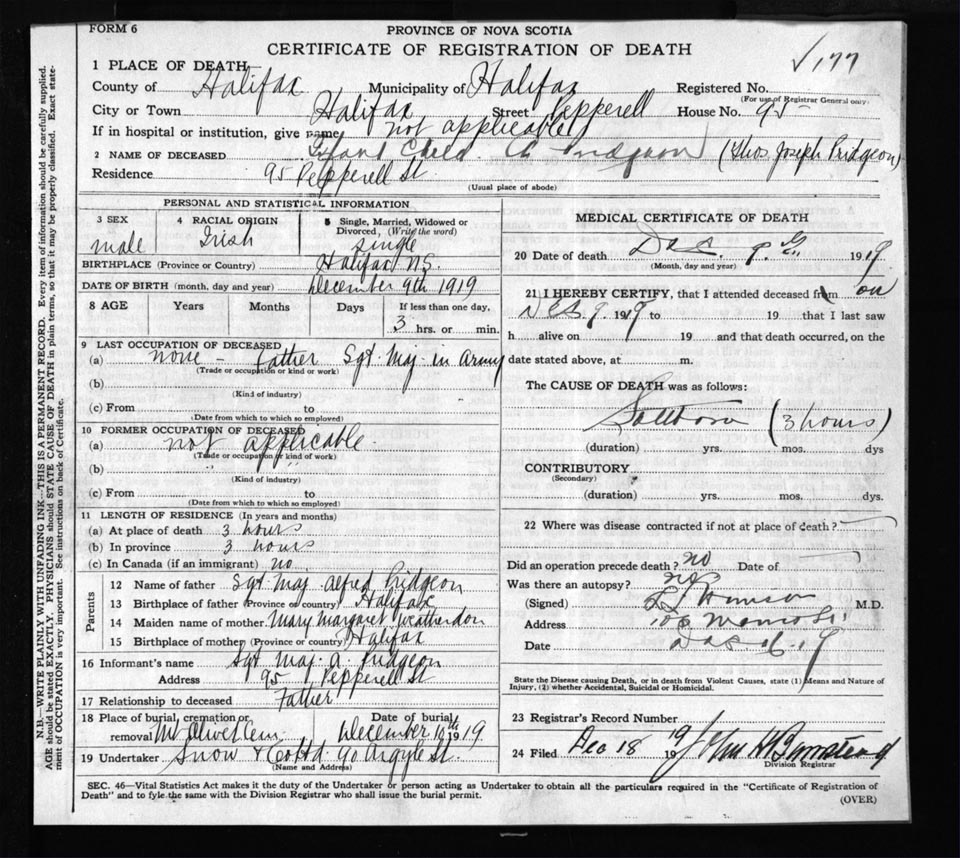 FORM 6
PROVINCE OF NOVA SCOTIA
CERTIFICATE OF REGISTRATION OF DEATH
177
1 PLACE OF DEATH
County of Halifax Municipality of Halifax Registered No.
(For use of Registrar General only)
City or Town Halifax Street Pepperell House No. 95
If in hospital or institution, give name not applicable
2 NAME OF DECEASED Infant Child A Pridgeon (Thos. Joseph Pridgeon)
Residence 95 Pepperell St
(Usual place of abode)
PERSONAL AND STATISTICAL INFORMATION
3 SEX male
4 RACIAL ORIGIN Irish
5 Single, Married, Widowed or Divorced, (Write the word) single
BIRTHPLACE (Province or Country) Halifax N.S.
DATE OF BIRTH (month, day and year) December 9th 1919
8 AGE Years Months Days If less than one day,
3 hrs. or min.
9 LAST OCCUPATION OF DECEASED
(a) none - Father Sgt. Maj. in Army
(Trade or occupation or kind or work)
(b)
(Kind of industry)
(c) From to
(Date from which to which so employed)
10 FORMER OCCUPATION OF DECEASED
(a) not applicable
(Trade or occupation or kind or work)
(b)
(Kind of industry)
(c) From to
(Date from which to which so employed)
11 LENGTH OF RESIDENCE (In years and months)
(a) At place of death 3 hours
(b) In province 3 hours
(c) In Canada (if an immigrant) no
Parents
12 Name of father Sgt. Maj. Alfred Pridgeon
13 Birthplace of father (Province or country) Halifax
14 Maiden name of mother Mary Margaret Weatherdon
15 Birthplace of mother (Province or country) Halifax
16 Informant's name Sgt Maj. A. Pridgeon
Address 95 Pepperell St
17 Relationship to deceased Father
18 Place of burial, cremation or removal Mt Olivet Cem. Date of burial December 10th 1919
19 Undertaker Snow & Co Ltd 90 Argyle St.
(Name and Address)
MEDICAL CERTIFICATE OF DEATH
20 Date of death Dec. 9 1919
(Month, day and year)
21 I HEREBY CERTIFY, that I attended deceased from on
Dec. 9 1919 to 19 that I last saw
h alive on 19 and that death occurred, on the
date stated above, at m.
The CAUSE OF DEATH was as follows:
(3 hours)
(duration) yrs. mos. dys
CONTRIBUTORY
(Secondary)
(duration) yrs. mos. dys.
22 Where was disease contracted if not at place of death?
Did an operation precede death? no Date of
Was there an autopsy? no
(Signed) M.D.
Address
Date Dec 16.19
State the Disease causing Death, or in death from Violent Causes, state (1) Means and Nature of Injury, (2) whether Accidental, Suicidal or Homicidal.
23 Registrar's Record Number
24 Filed Dec 18 1919 John H Barnstead
Division Registrar
SEC. 46—Vital Statistics Act makes it the duty of the Undertaker or person acting as Undertaker to obtain all the particulars required in the "Certificate of Registration of
Death" and to fyle the same with the Division Registrar who shall issue the burial permit.
(OVER)
N.B.—WRITE PLAINLY WITH UNFADING INK—THIS IS A PERMANENT RECORD. Every item of information should be carefully supplied.
AGE should be stated EXACTLY. PHYSICIANS should STATE CAUSE OF DEATH in plain terms, so that it may be properly classified. Exact state-
ment of OCCUPATION is very important. See instructions on back of Certificate.